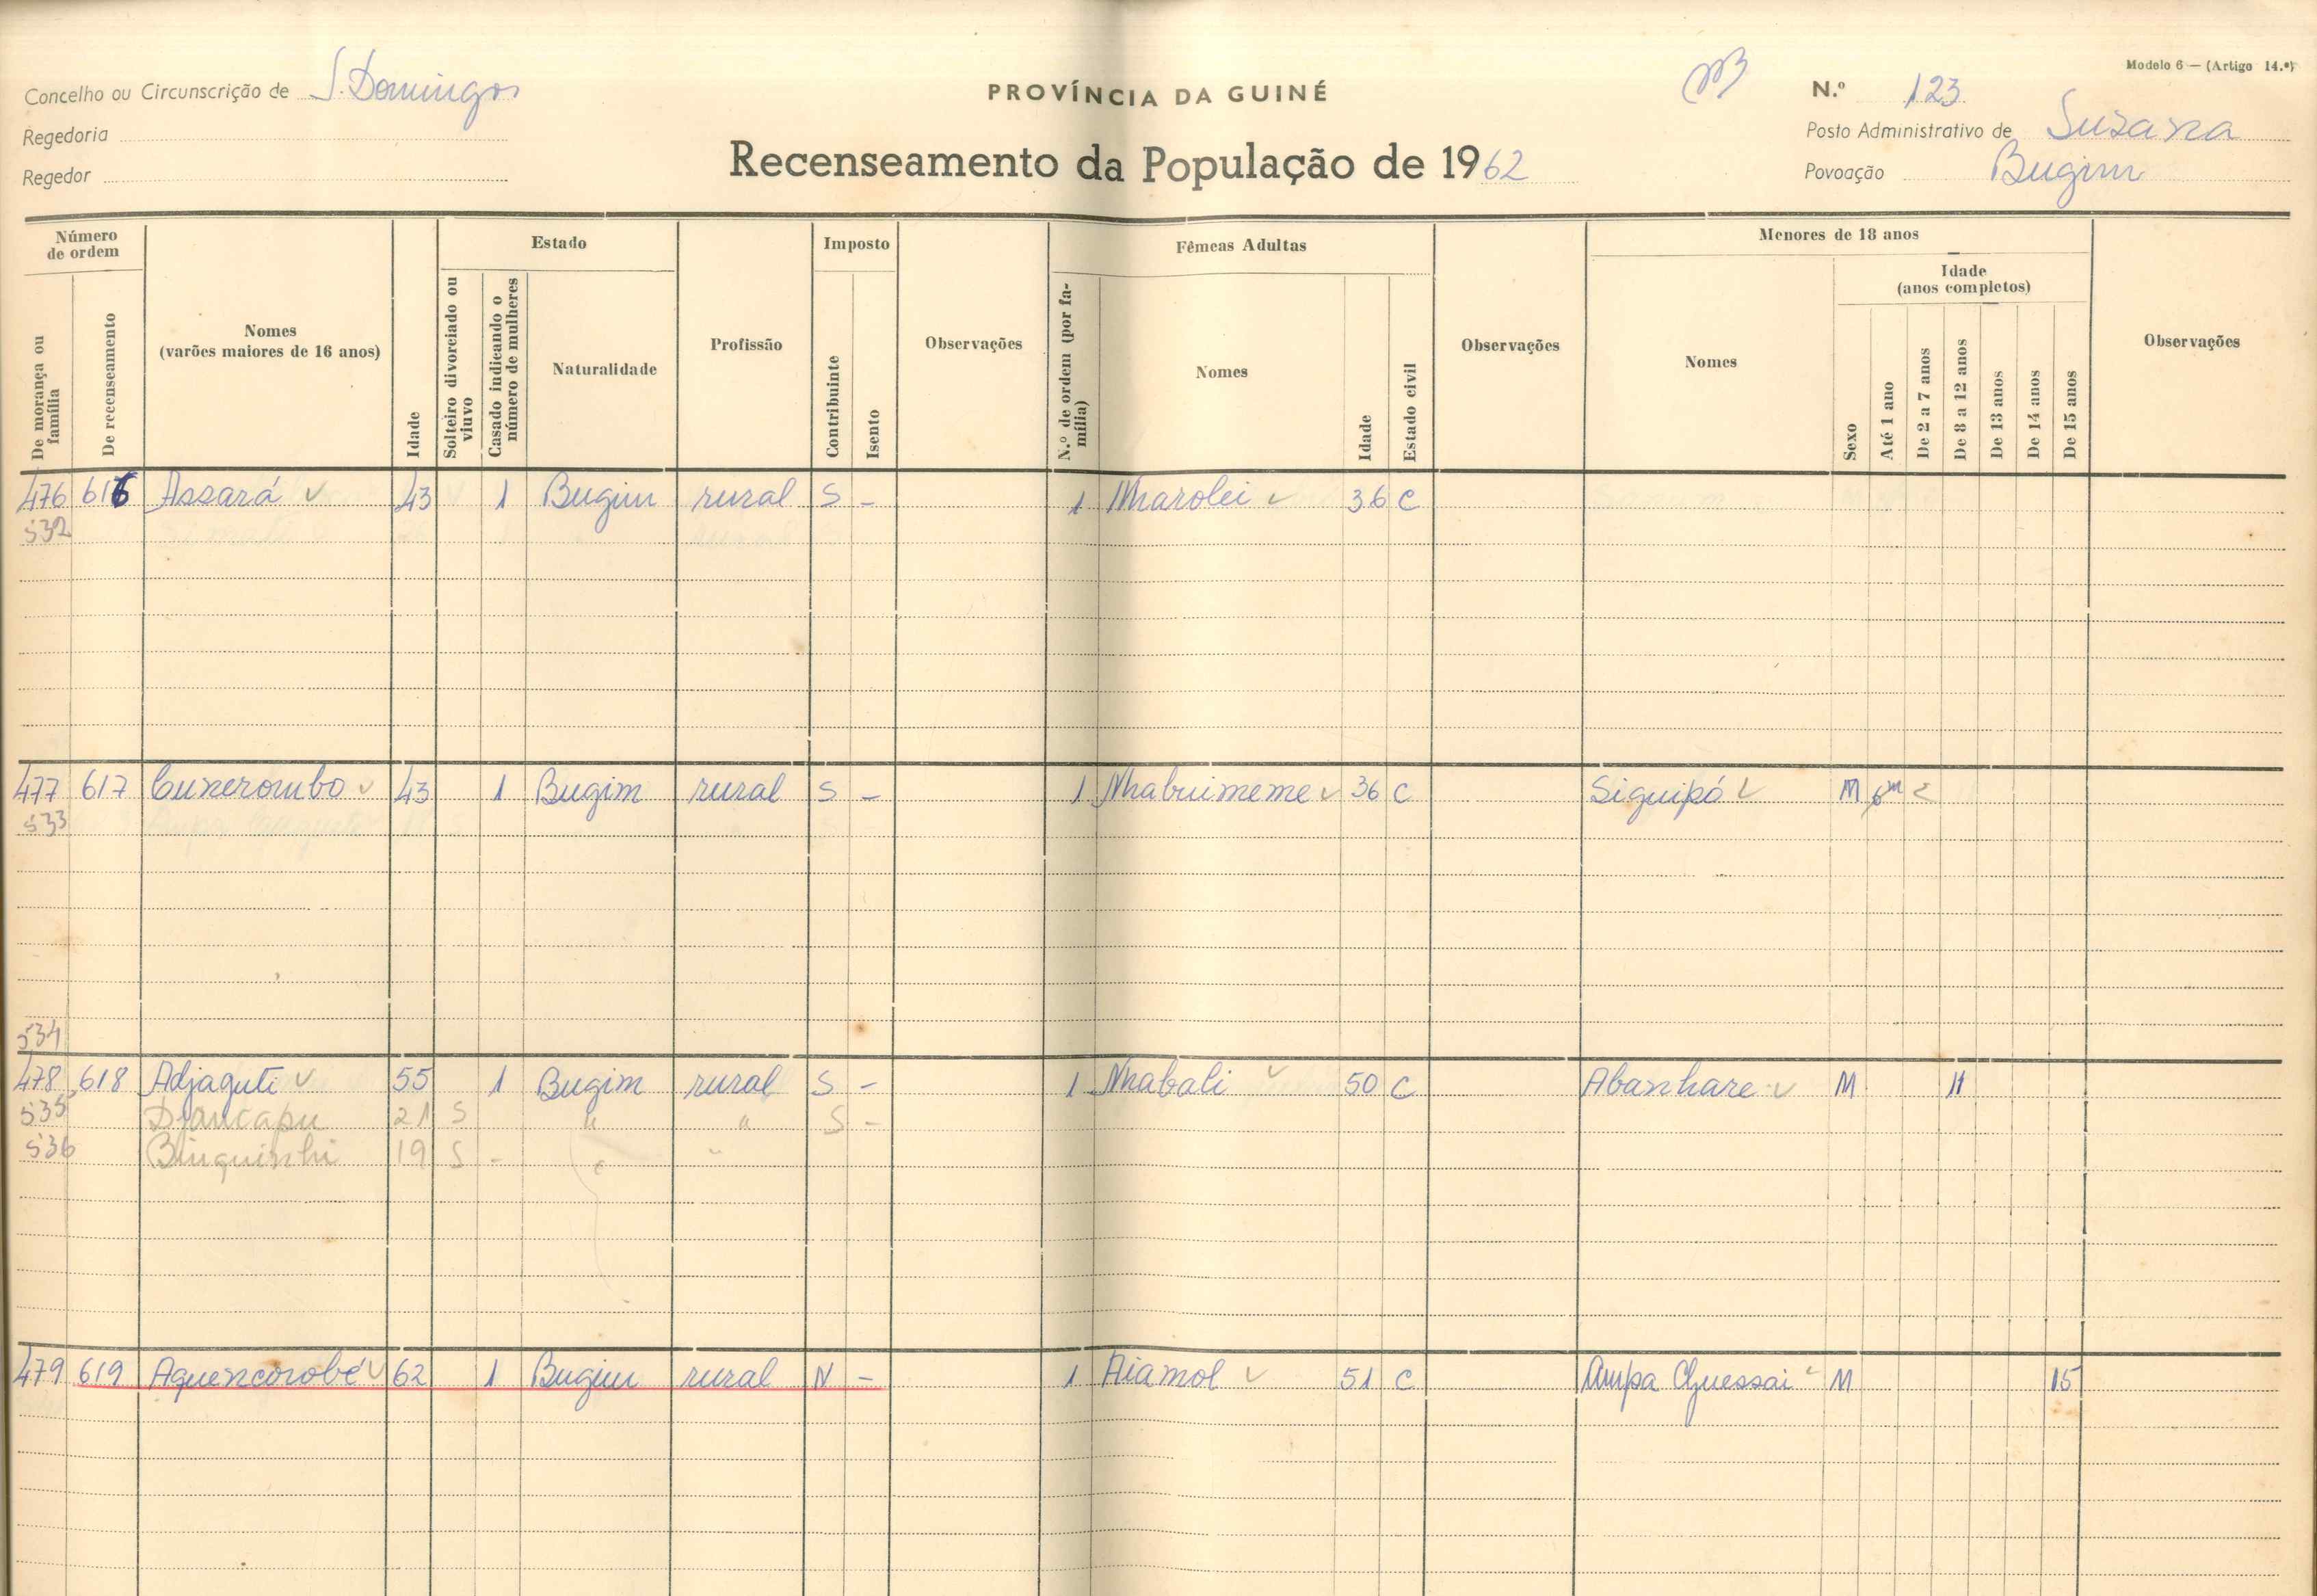 Modelo 6 — (Artigo 14.º)
Concelho ou Circunscrição de S. Domingos
PROVÍNCIA DA GUINÉ
N.º 123
Regedoria
Posto Administrativo de Suzana
Recenseamento da População de 1962
Regedor
Povoação Bugim
Número de ordem
Estado
Imposto
Fêmeas Adultas
Menores de 18 anos
Idade (anos completos)
De morança ou família
De recenseamento
Nomes (varões maiores de 16 anos)
Idade
Solteiro divorciado ou viuvo
Casado indicando o número de mulheres
Naturalidade
Profissão
Contribuinte
Isento
Observações
N.º de ordem (por família)
Nomes
Idade
Estado civil
Observações
Nomes
Sexo
Até 1 ano
De 2 a 7 anos
De 8 a 12 anos
De 13 anos
De 14 anos
De 15 anos
Observações
476 616 Assará 43 1 Bugim rural S - 1 Nharolei 36 C
532
477 617 Cunerombo 43 1 Bugim rural S - 1 Nhabuimeme 36 C Siguipó M 6m
533
534
478 618 Adjaguti 55 1 Bugim rural S - 1 Nhabali 50 C Abanhare M 11
535 Djancapu 21 S " " S -
536 Binguinhi 19 S - " "
479 619 Aquencorobé 62 1 Bugim rural N - 1 Aiamol 51 C Ampa Guessai M 15